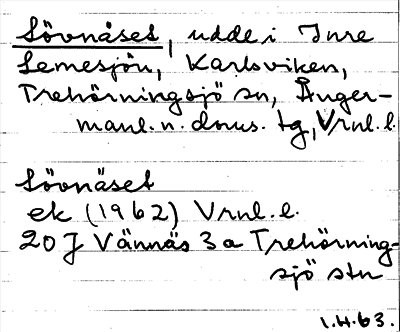 Lövnäset, udde i Inre
Lemesjön, Karlsviken,
Trehörningsjö sn, Ånger-
manl. n. doms. tg, Vrnl. l.
Lövnäset
ek (1962) Vrnl. l.
20 J Vännäs 3 a Trehörning-
sjö stn
1.4.63.